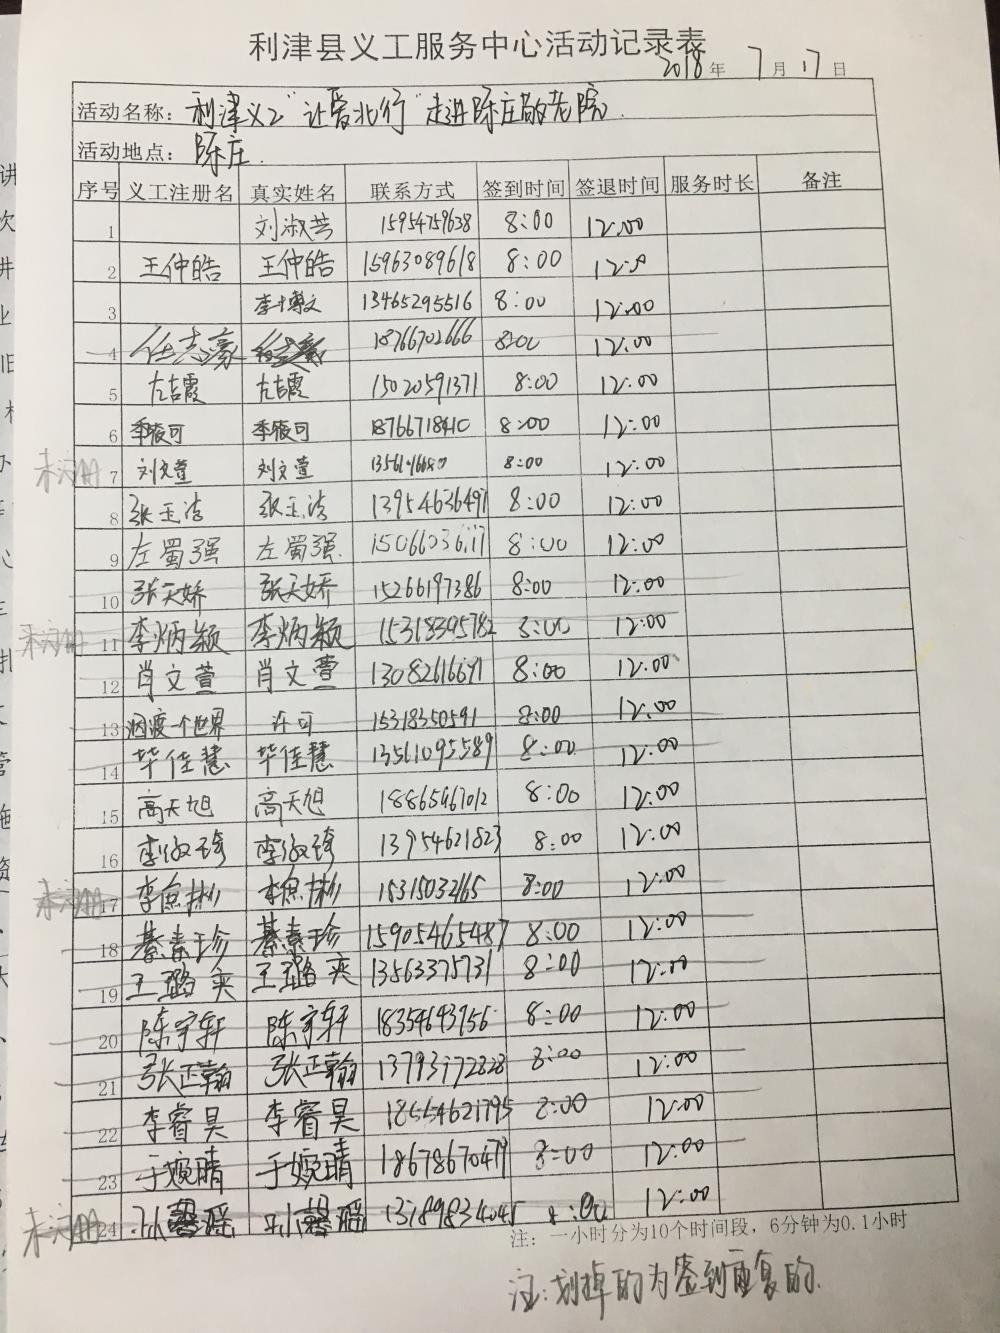 利津县义工服务中心活动记录表
2018年 7月17日
活动名称：利津义工"让爱北行"走进陈庄敬老院.
活动地点：陈庄.
序号 义工注册名 真实姓名 联系方式 签到时间 签退时间 服务时长 备注
1 刘淑芸 15954759638 8:00 12:00
2 王仲皓 王仲皓 15963089618 8:00 12:00
3 李博文 13465295516 8:00 12:00
4 任志豪 18766702666 8:00 12:00
5 左吉霞 左吉霞 15020591371 8:00 12:00
6 季筱可 季筱可 18766718410 8:00 12:00
未注册 7 刘文萱 刘文萱 8:00 12:00
8 张玉洁 张玉洁 13954636491 8:00 12:00
9 左蜀强 左蜀强 15066036111 8:00 12:00
10 张天娇 张天娇 15266197386 8:00 12:00
未注册 11 李炳颖 李炳颖 15318395782 8:00 12:00
12 肖文萱 肖文萱 13082616691 8:00 12:00
13 烟渡一个世界 许可 15318350591 8:00 12:00
14 毕佳慧 毕佳慧 13561095589 8:00 12:00
15 高天旭 高天旭 18865467012 8:00 12:00
16 13954621823 8:00 12:00
未注册 17 18315032165 8:00 12:00
18 綦素珍 綦素珍 15905465487 8:00 12:00
19 王璐奕 王璐奕 13563375731 8:00 12:00
20 陈宇轩 陈宇轩 18354693956 8:00 12:00
21 张正翰 张正翰 13793972828 8:00 12:00
22 李睿昊 李睿昊 18554621795 8:00 12:00
23 于婉晴 于婉晴 18678670479 8:00 12:00
未注册 24 孙馨瑶 孙馨瑶 13189834045 8:00 12:00
注：一小时分为10个时间段，6分钟为0.1小时
注:划掉的为签到重复的.